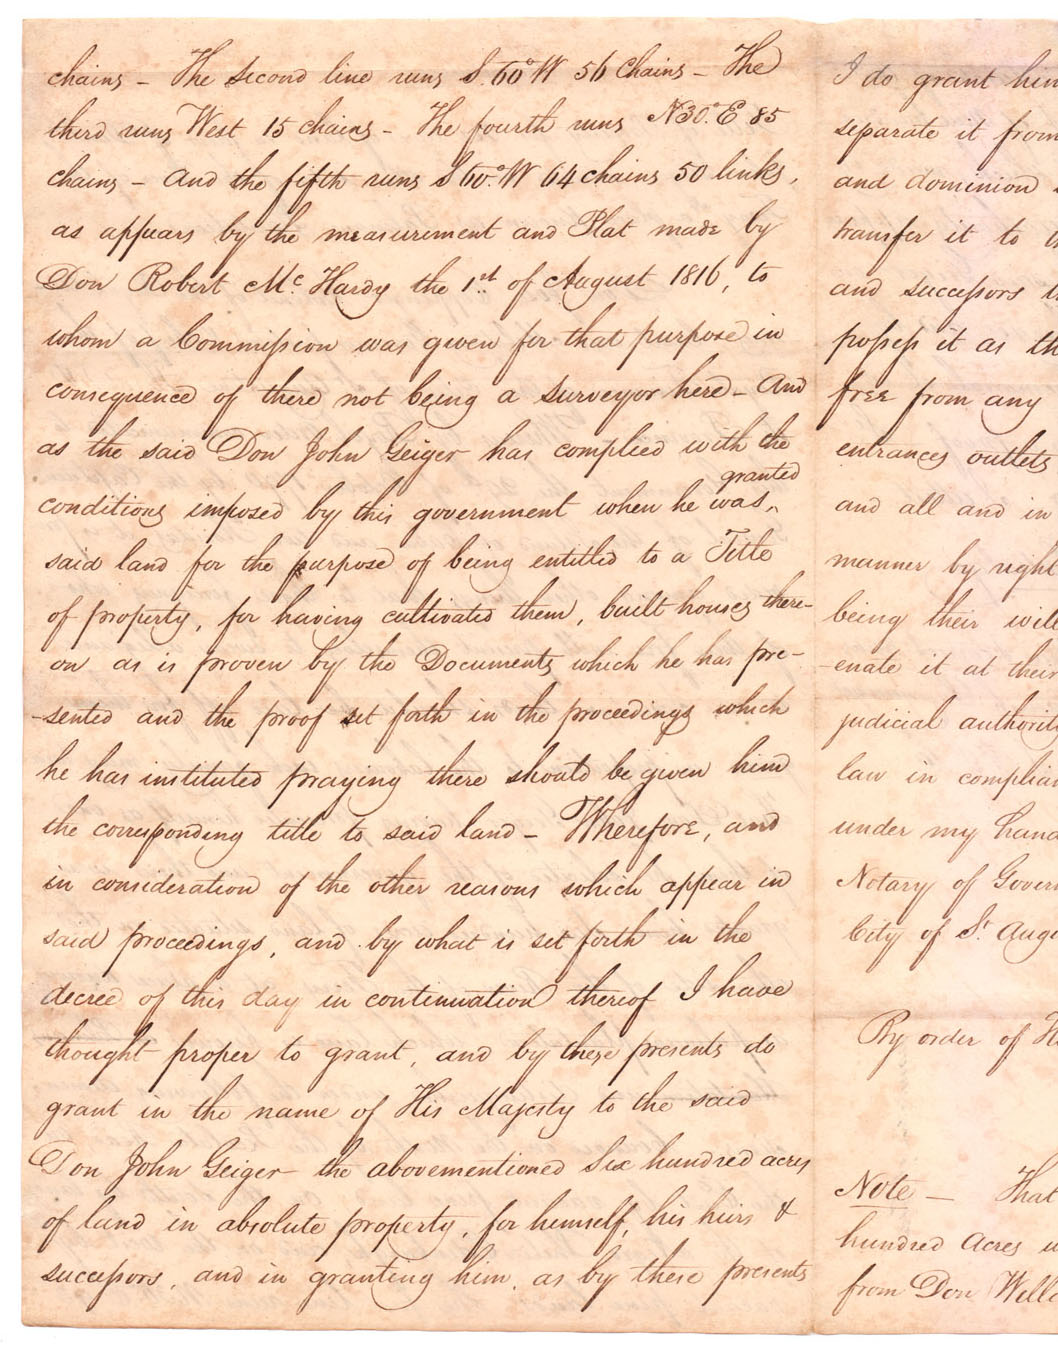 chains – The second line runs S. 60° W 56 Chains – The
third runs West 15 chains – The fourth runs N 30° E 85
chains – And the fifth runs S 60° W 64 chains 50 links,
as appears by the measurement and Plat made by
Don Robert Mc Hardy the 1st of August 1816, to
whom a Commission was given for that purpose in
consequence of there not being a surveyor here – And
as the said Don John Geiger has complied with the
granted
conditions imposed by this government when he was ^
said land for the purpose of being entitled to a Title
of property, for having cultivated them, built houses there-
on as is proven by the Documents which he has pre-
-sented and the proof set forth in the proceedings which
he has instituted praying there should be given him
the corresponding title to said land – Wherefore, and
in consideration of the other reasons which appear in
said proceedings, and by what is set forth in the
decree of this day in continuation thereof I have
thought proper to grant, and by these presents do
grant in the name of His Majesty to the said
Don John Geiger the abovementioned Six hundred acres
of land in absolute property, for himself, his heirs &
successors, and in granting him, as by these presents
I do grant him
separate it from
and dominion
transfer it to
and successors
possess it as
free from any
entrances outlets
and all and in
manner by right
being their
-enate it at their
judicial authority
law in
under my hand
Notary of
City of St.
By order of
Note – That
hundred Acres
from Don